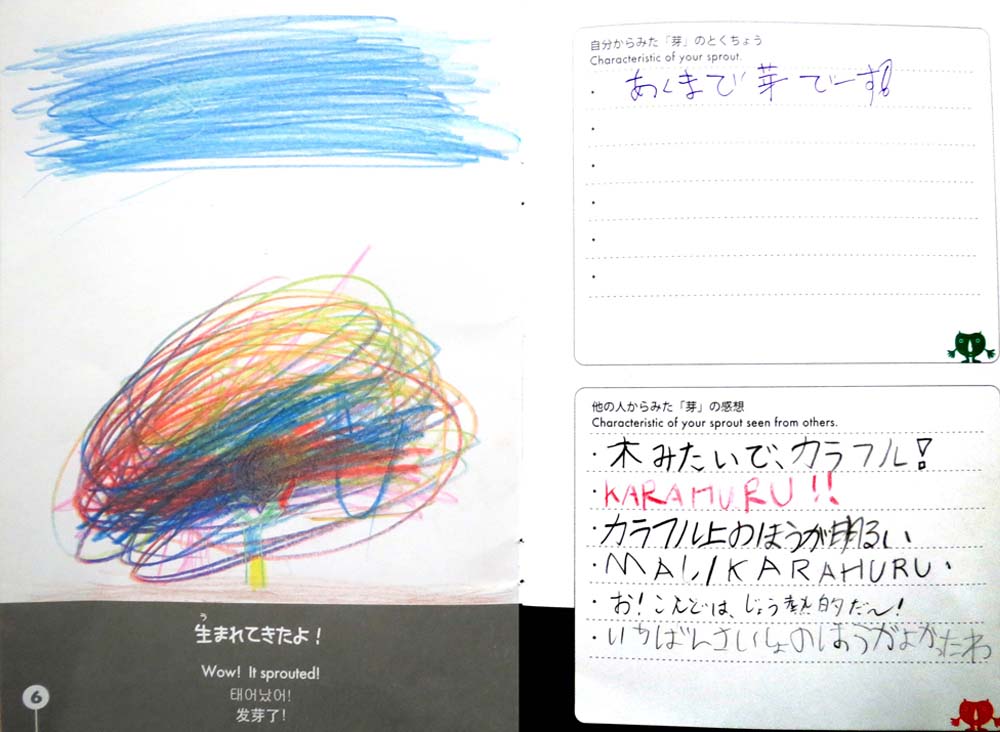 生まれてきたよ！
う
Wow! It sprouted!
태어났어!
发芽了!
6
自分からみた「芽」のとくちょう
Characteristic of your sprout.
・あくまで芽でーす!
他の人からみた「芽」の感想
Characteristic of your sprout seen from others.
・木みたいで、カラフル!
・KARAHURU!!
・カラフル上のほうが明るい
・KARAHURU.
・お!こんどは、じょう熱的だ〜!
・いちばんさいしょのほうがよかったわ